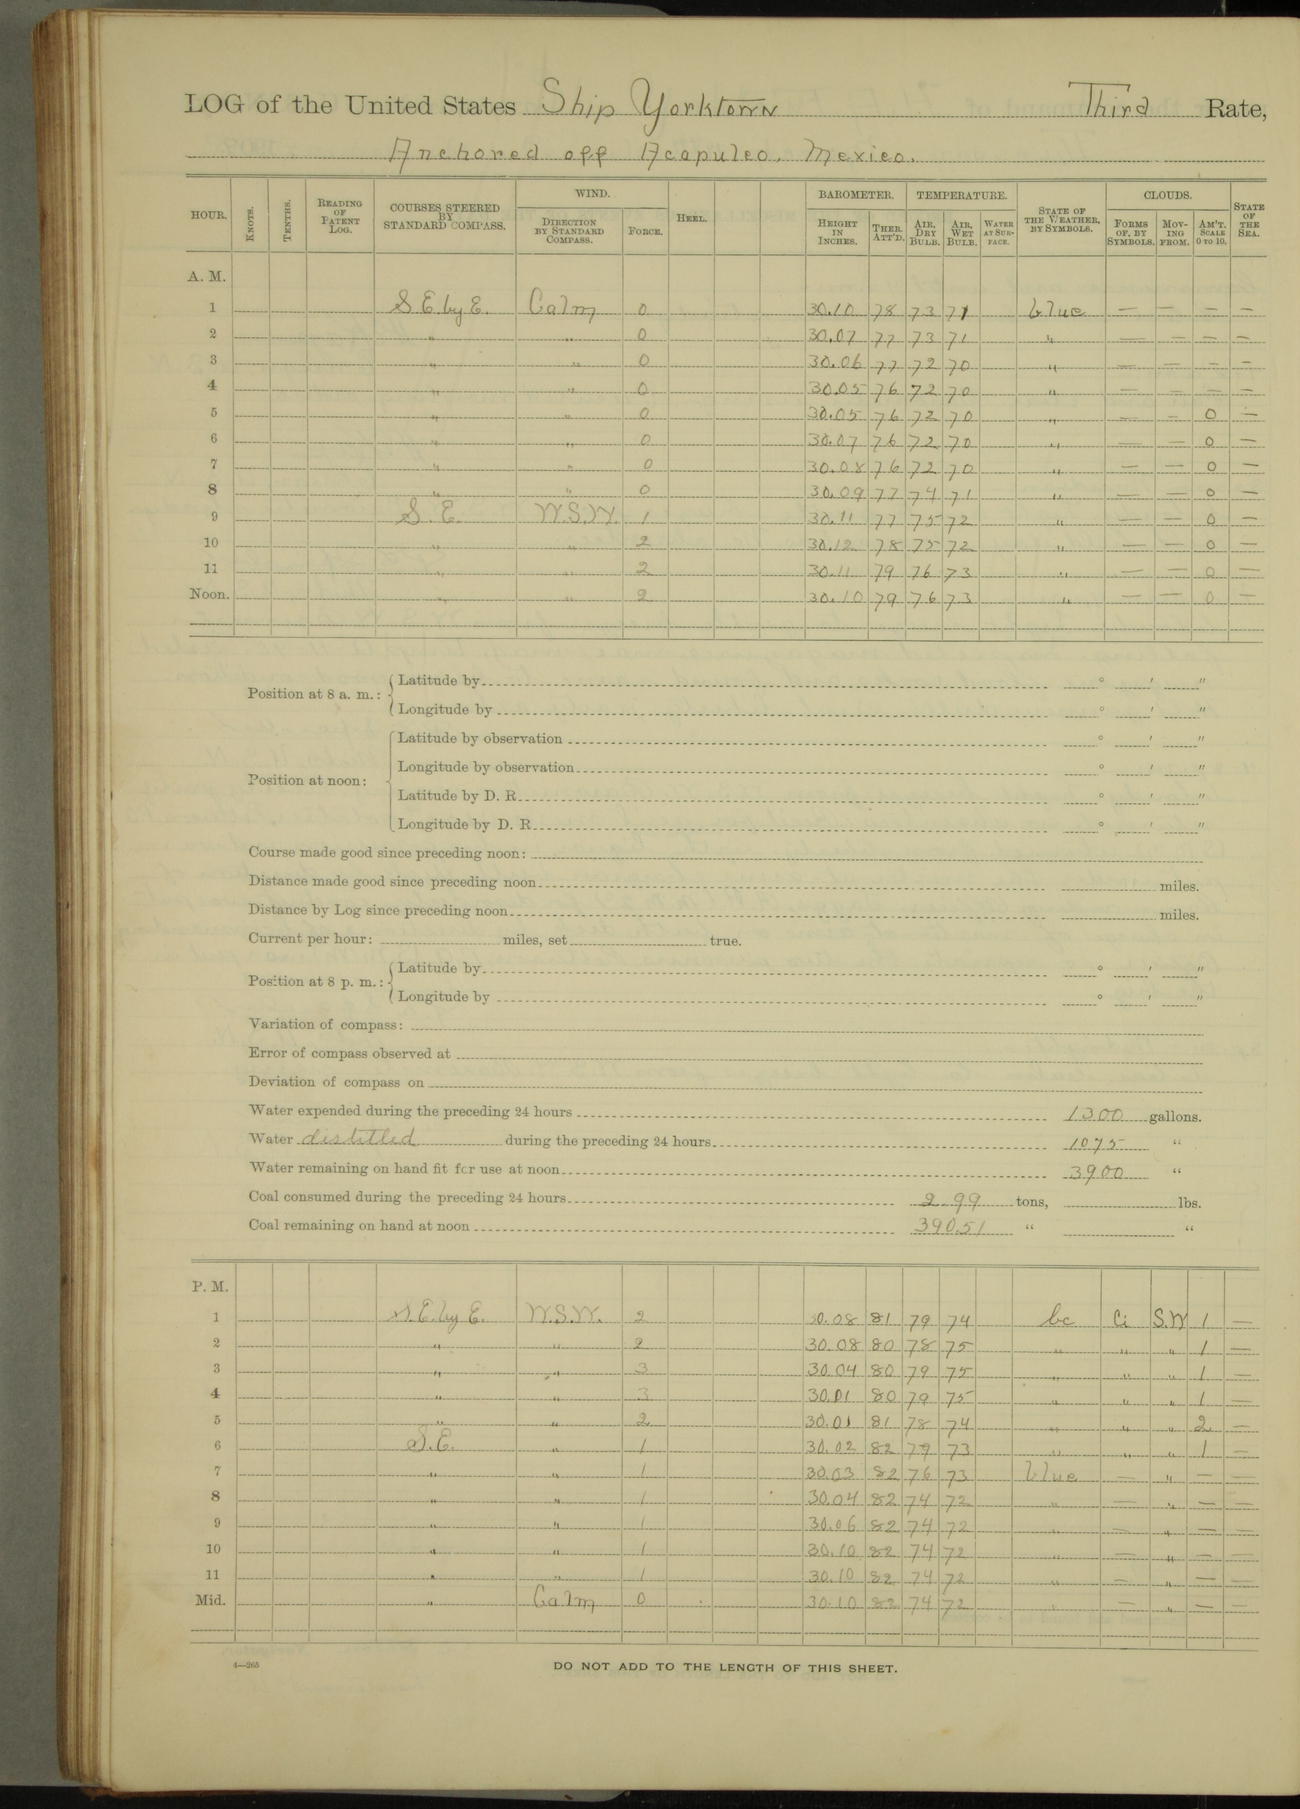 LOG of the United States Ship Yorktown Third Rate,
Anchored off Acapulco, Mexico.
HOUR. KNOTS. TENTHS. READING OF PATENT LOG. COURSES STEERED BY STANDARD COMPASS. WIND. DIRECTION BY STANDARD COMPASS. FORCE. HEEL. BAROMETER. HEIGHT IN INCHES. THER. ATT'D. TEMPERATURE. AIR, DRY BULB. AIR, WET BULB. WATER AT SURFACE. STATE OF THE WEATHER, BY SYMBOLS. CLOUDS. FORMS OF, BY SYMBOLS. MOVING FROM. AM'T. SCALE 0 TO 10. STATE OF THE SEA.
A. M.
1 S E by E. Calm 0 30.10 78 73 71 blue — — — —
2 " " 0 30.07 77 73 71 " — — — —
3 " " 0 30.06 77 72 70 " — — — —
4 " " 0 30.05 76 72 70 " — — — —
5 " " 0 30.05 76 72 70 " — — 0 —
6 " " 0 30.07 76 72 70 " — — 0 —
7 " " 0 30.08 76 72 70 " — — 0 —
8 " " 0 30.09 77 74 71 " — — 0 —
9 S. E. W.S.W. 1 30.11 77 75 72 " — — 0 —
10 " " 2 30.12 78 75 72 " — — 0 —
11 " " 2 30.11 79 76 73 " — — 0 —
Noon. " " 2 30.10 79 76 73 " — — 0 —
Position at 8 a. m.: Latitude by ° ′ ″
Longitude by ° ′ ″
Position at noon: Latitude by observation ° ′ ″
Longitude by observation ° ′ ″
Latitude by D. R. ° ′ ″
Longitude by D. R. ° ′ ″
Course made good since preceding noon:
Distance made good since preceding noon miles.
Distance by Log since preceding noon miles.
Current per hour: miles, set true.
Position at 8 p. m.: Latitude by ° ′ ″
Longitude by ° ′ ″
Variation of compass:
Error of compass observed at
Deviation of compass on
Water expended during the preceding 24 hours 1300 gallons.
Water distilled during the preceding 24 hours 1075 "
Water remaining on hand fit for use at noon 3900 "
Coal consumed during the preceding 24 hours 2.99 tons, lbs.
Coal remaining on hand at noon 390.51 " "
P. M.
1 S.E. by E. W.S.W. 2 30.08 81 79 74 bc Ci S.W 1 —
2 " " 2 30.08 80 78 75 " " " 1 —
3 " " 3 30.04 80 79 75 " " " 1 —
4 " " 3 30.01 80 79 75 " " " 1 —
5 " " 2 30.01 81 78 74 " " " 2 —
6 S.E. " 1 30.02 82 79 73 " " " 1 —
7 " " 1 30.03 82 76 73 blue — " — —
8 " " 1 30.04 82 74 72 " — " — —
9 " " 1 30.06 82 74 72 " — " — —
10 " " 1 30.10 82 74 72 " — " — —
11 " " 1 30.10 82 74 72 " — " — —
Mid. " Calm 0 30.10 82 74 72 " — " — —
4—265 DO NOT ADD TO THE LENGTH OF THIS SHEET.